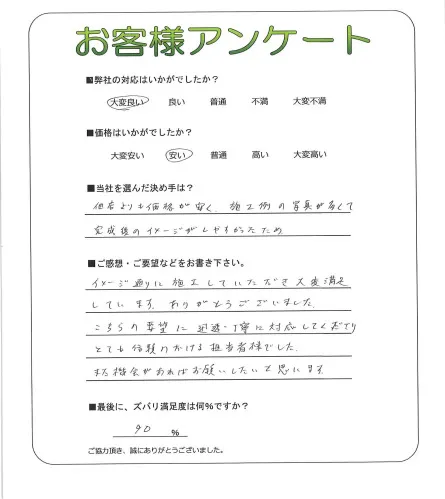 お客様アンケート
■弊社の対応はいかがでしたか？
大変良い 良い 普通 不満 大変不満
■価格はいかがでしたか？
大変安い 安い 普通 高い 大変高い
■当社を選んだ決め手は？
他店よりも価格が安く、施工例の写真が多くて
完成後のイメージがしやすかったため
■ご感想・ご要望などをお書き下さい。
イメージ通りに施工していただき大変満足
しています。ありがとうございました。
こちらの要望に迅速・丁寧に対応してくださり
とても信頼のおける担当者様でした。
また機会があればお願いしたいと思います。
■最後に、ズバリ満足度は何％ですか？
90 ％
ご協力頂き、誠にありがとうございました。